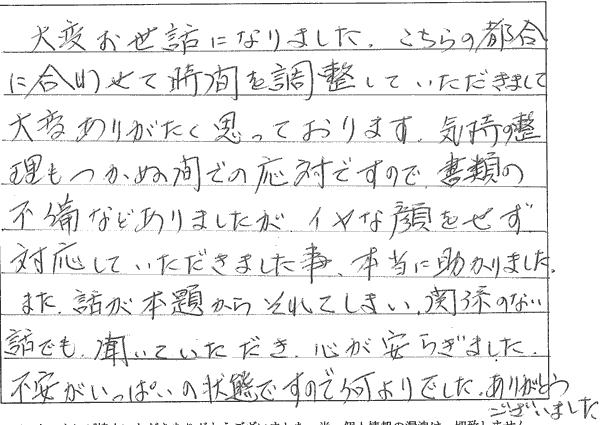 大変お世話になりました。こちらの都合
に合わせて時間を調整していただきまして
大変ありがたく思っております。気持の整
理もつかぬ間での応対ですので、書類の
不備などありましたが、イヤな顔をせず
対応していただきました事、本当に助かりました。
また、話が本題からそれてしまい、関係のない
話でも、聞いていただき、心が安らぎました。
不安がいっぱいの状態ですので何よりでした。ありがとう
ございました